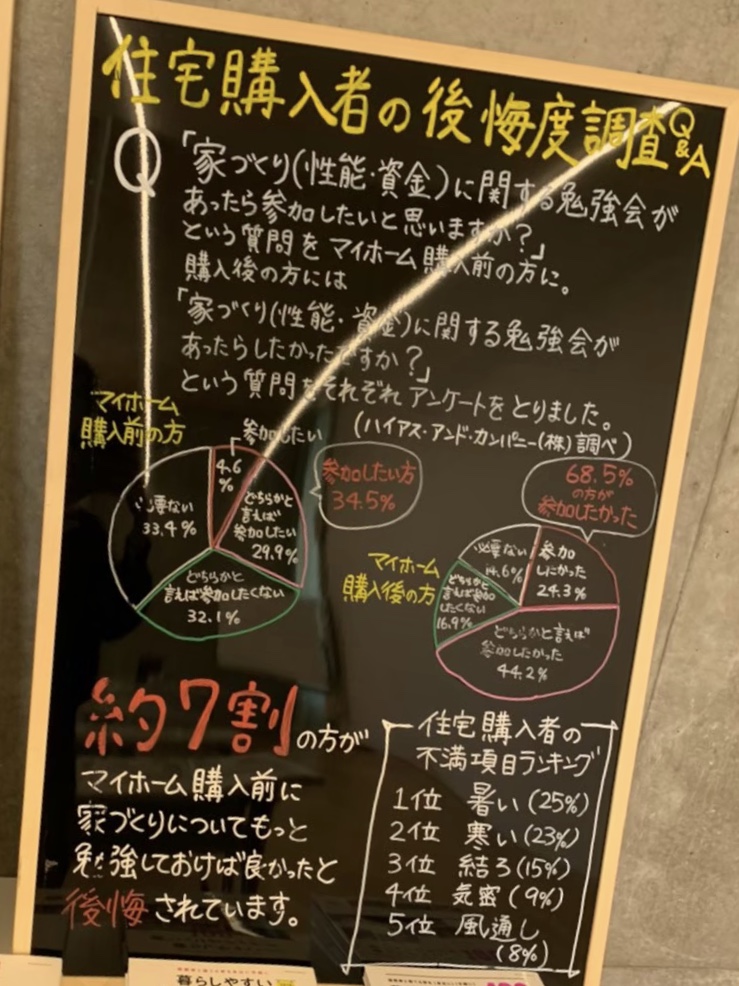 住宅購入者の後悔度調査Q&A
Q
「家づくり(性能・資金)に関する勉強会が
あったら参加したいと思いますか?」
という質問をマイホーム購入前の方に。
購入後の方には
「家づくり(性能・資金)に関する勉強会が
あったらしたかったですか?」
という質問をそれぞれアンケートをとりました。
(ハイアス・アンド・カンパニー(株)調べ)
マイホーム
購入前の方
参加したい
4.6
%
どちらかと
言えば
参加したい
29.9%
どちらかと
言えば参加したくない
32.1%
必要ない
33.4%
参加したい方
34.5%
マイホーム
購入後の方
68.5%
の方が
参加したかった
参加
したかった
24.3%
どちらかと言えば
参加したかった
44.2%
どちらかと
言えば参加
したくない
16.9%
必要ない
14.6%
約7割の方が
マイホーム購入前に
家づくりについてもっと
勉強しておけば良かったと
後悔されています。
住宅購入者の
不満項目ランキング
1位 暑い(25%)
2位 寒い(23%)
3位 結ろ(15%)
4位 気密(9%)
5位 風通し
(8%)
暮らしやすい